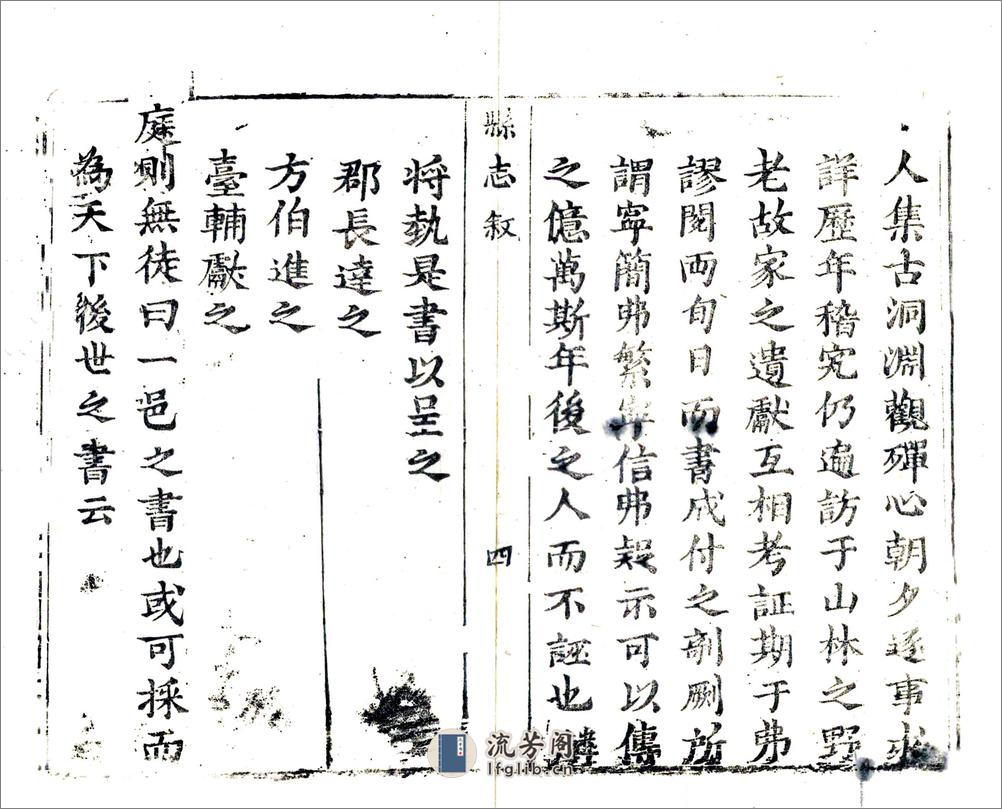 人集古洞淵觀殫心朝夕逐事求
詳歷年稽究仍遍訪于山林之野
老故家之遺獻互相考証期于弗
謬閱兩旬日而書成付之剞劂所
謂寧簡弗繁寧信弗疑示可以傳
之億萬斯年後之人而不誣也
縣志敘
四
將執是書以呈之
郡長達之
方伯進之
臺輔獻之
庭則無徒曰一邑之書也或可採而
為天下後世之書云
流芳阁
lfglib.cn